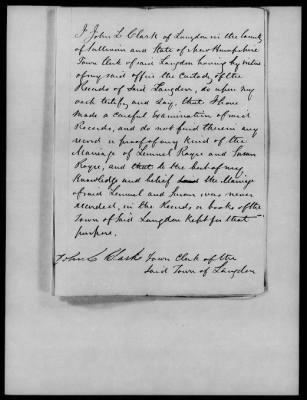 I John L Clark of Langdon in the County
of Sullivan and State of New Hampshire
Town Clerk of said Langdon having by virtue
of my said office the Custody of the
Records of Said Langdon, do upon my
oath testify and Say, that I have
made a careful Examination of said
Records, and do not find therein any
record or proof of any kind of the
Marriage of Lemuel Royce and Susan
Royce, and that to the best of my
Knowledge and belief the Marriage
of said Lemuel and Susan was never
recorded, in the Records or books of the
Town of Said Langdon Kept for that
purpose.
John L Clark Town Clerk of the
Said Town of Langdon